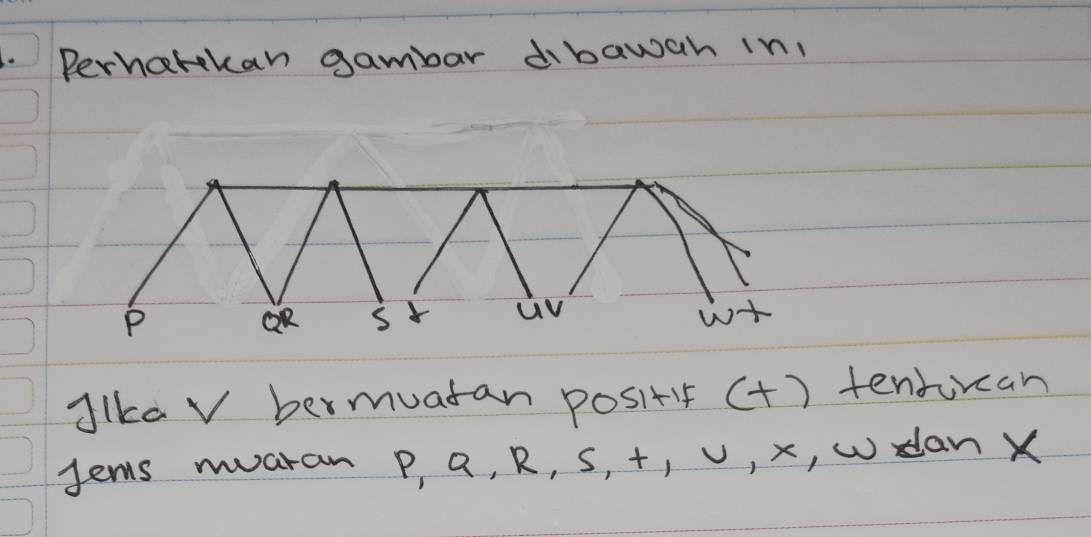 1. Perhatikan gambar dibawah ini
P QR S t UV W+
Jika V bermuatan positif (+) tentukan
Jenis muatan P, Q, R, S, +, U, x, w dan X